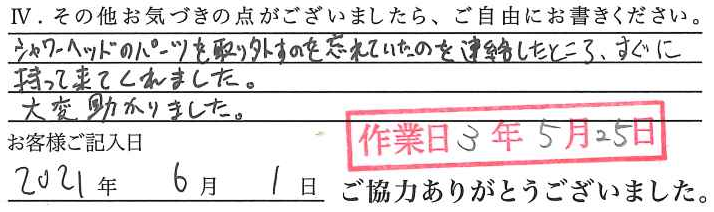 Ⅳ．その他お気づきの点がございましたら、ご自由にお書きください。
シャワーヘッドのパーツを取り外すのを忘れていたのを連絡したところ、すぐに
持って来てくれました。
大変助かりました。
お客様ご記入日
作業日3年5月25日
2021年 6月 1日 ご協力ありがとうございました。